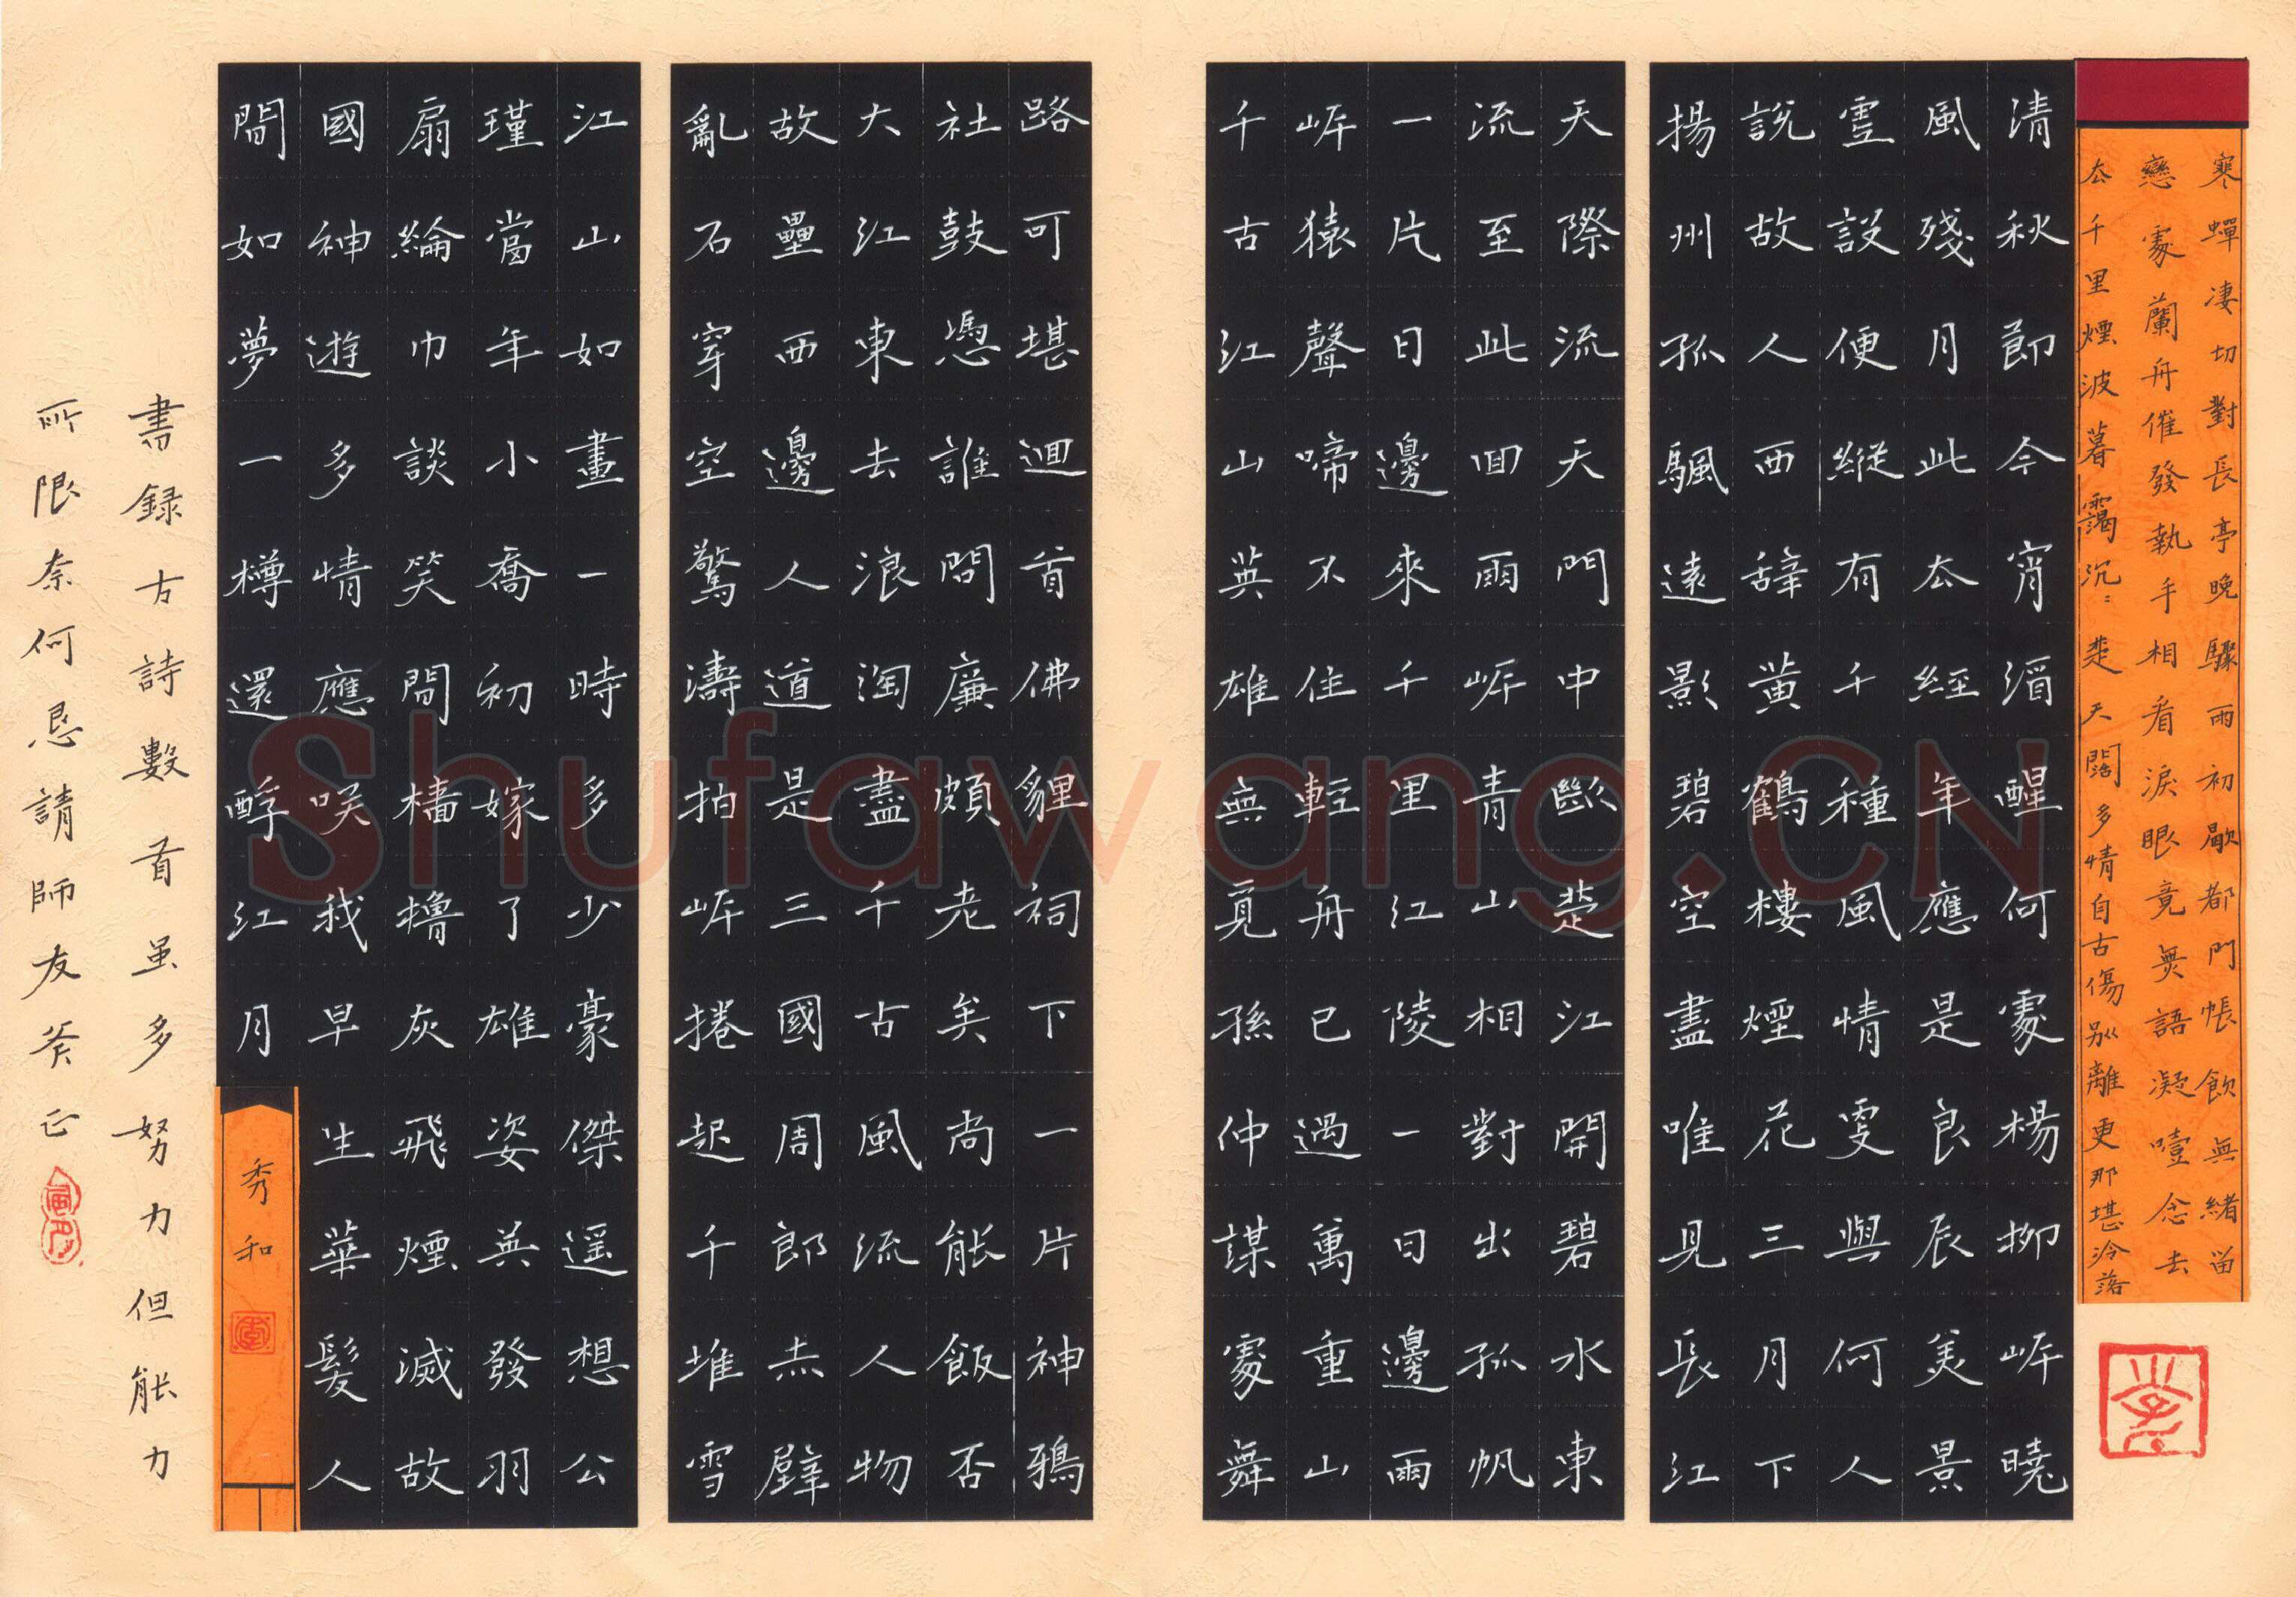 寒蟬凄切對長亭晚驟雨初歇都門帳飲無緒留
戀處蘭舟催發執手相看淚眼竟無語凝噎念去
去千里煙波暮靄沉〻楚天闊多情自古傷別離更那堪冷落
清秋節今宵酒醒何處楊柳岸曉
風殘月此去經年應是良辰美景
虛設便縱有千種風情更與何人
說故人西辭黃鶴樓煙花三月下
揚州孤颿遠影碧空盡唯見長江
天際流天門中斷楚江開碧水東
流至此回兩岸青山相對出孤帆
一片日邊來千里江陵一日邊兩
岸猿聲啼不住輕舟已過萬重山
千古江山英雄無覓孫仲謀處舞
路可堪迴首佛貍祠下一片神鴉
社鼓憑誰問廉頗老矣尚能飯否
大江東去浪淘盡千古風流人物
故壘西邊人道是三國周郎赤壁
亂石穿空驚濤拍岸捲起千堆雪
江山如畫一時多少豪傑遥想公
瑾當年小喬初嫁了雄姿英發羽
扇綸巾談笑間檣櫓灰飛煙滅故
國神遊多情應咲我早生華髮人
間如夢一樽還酹江月
秀和
書録古詩數首虽多努力但能力
所限奈何恳請師友斧正
Shufawang.CN